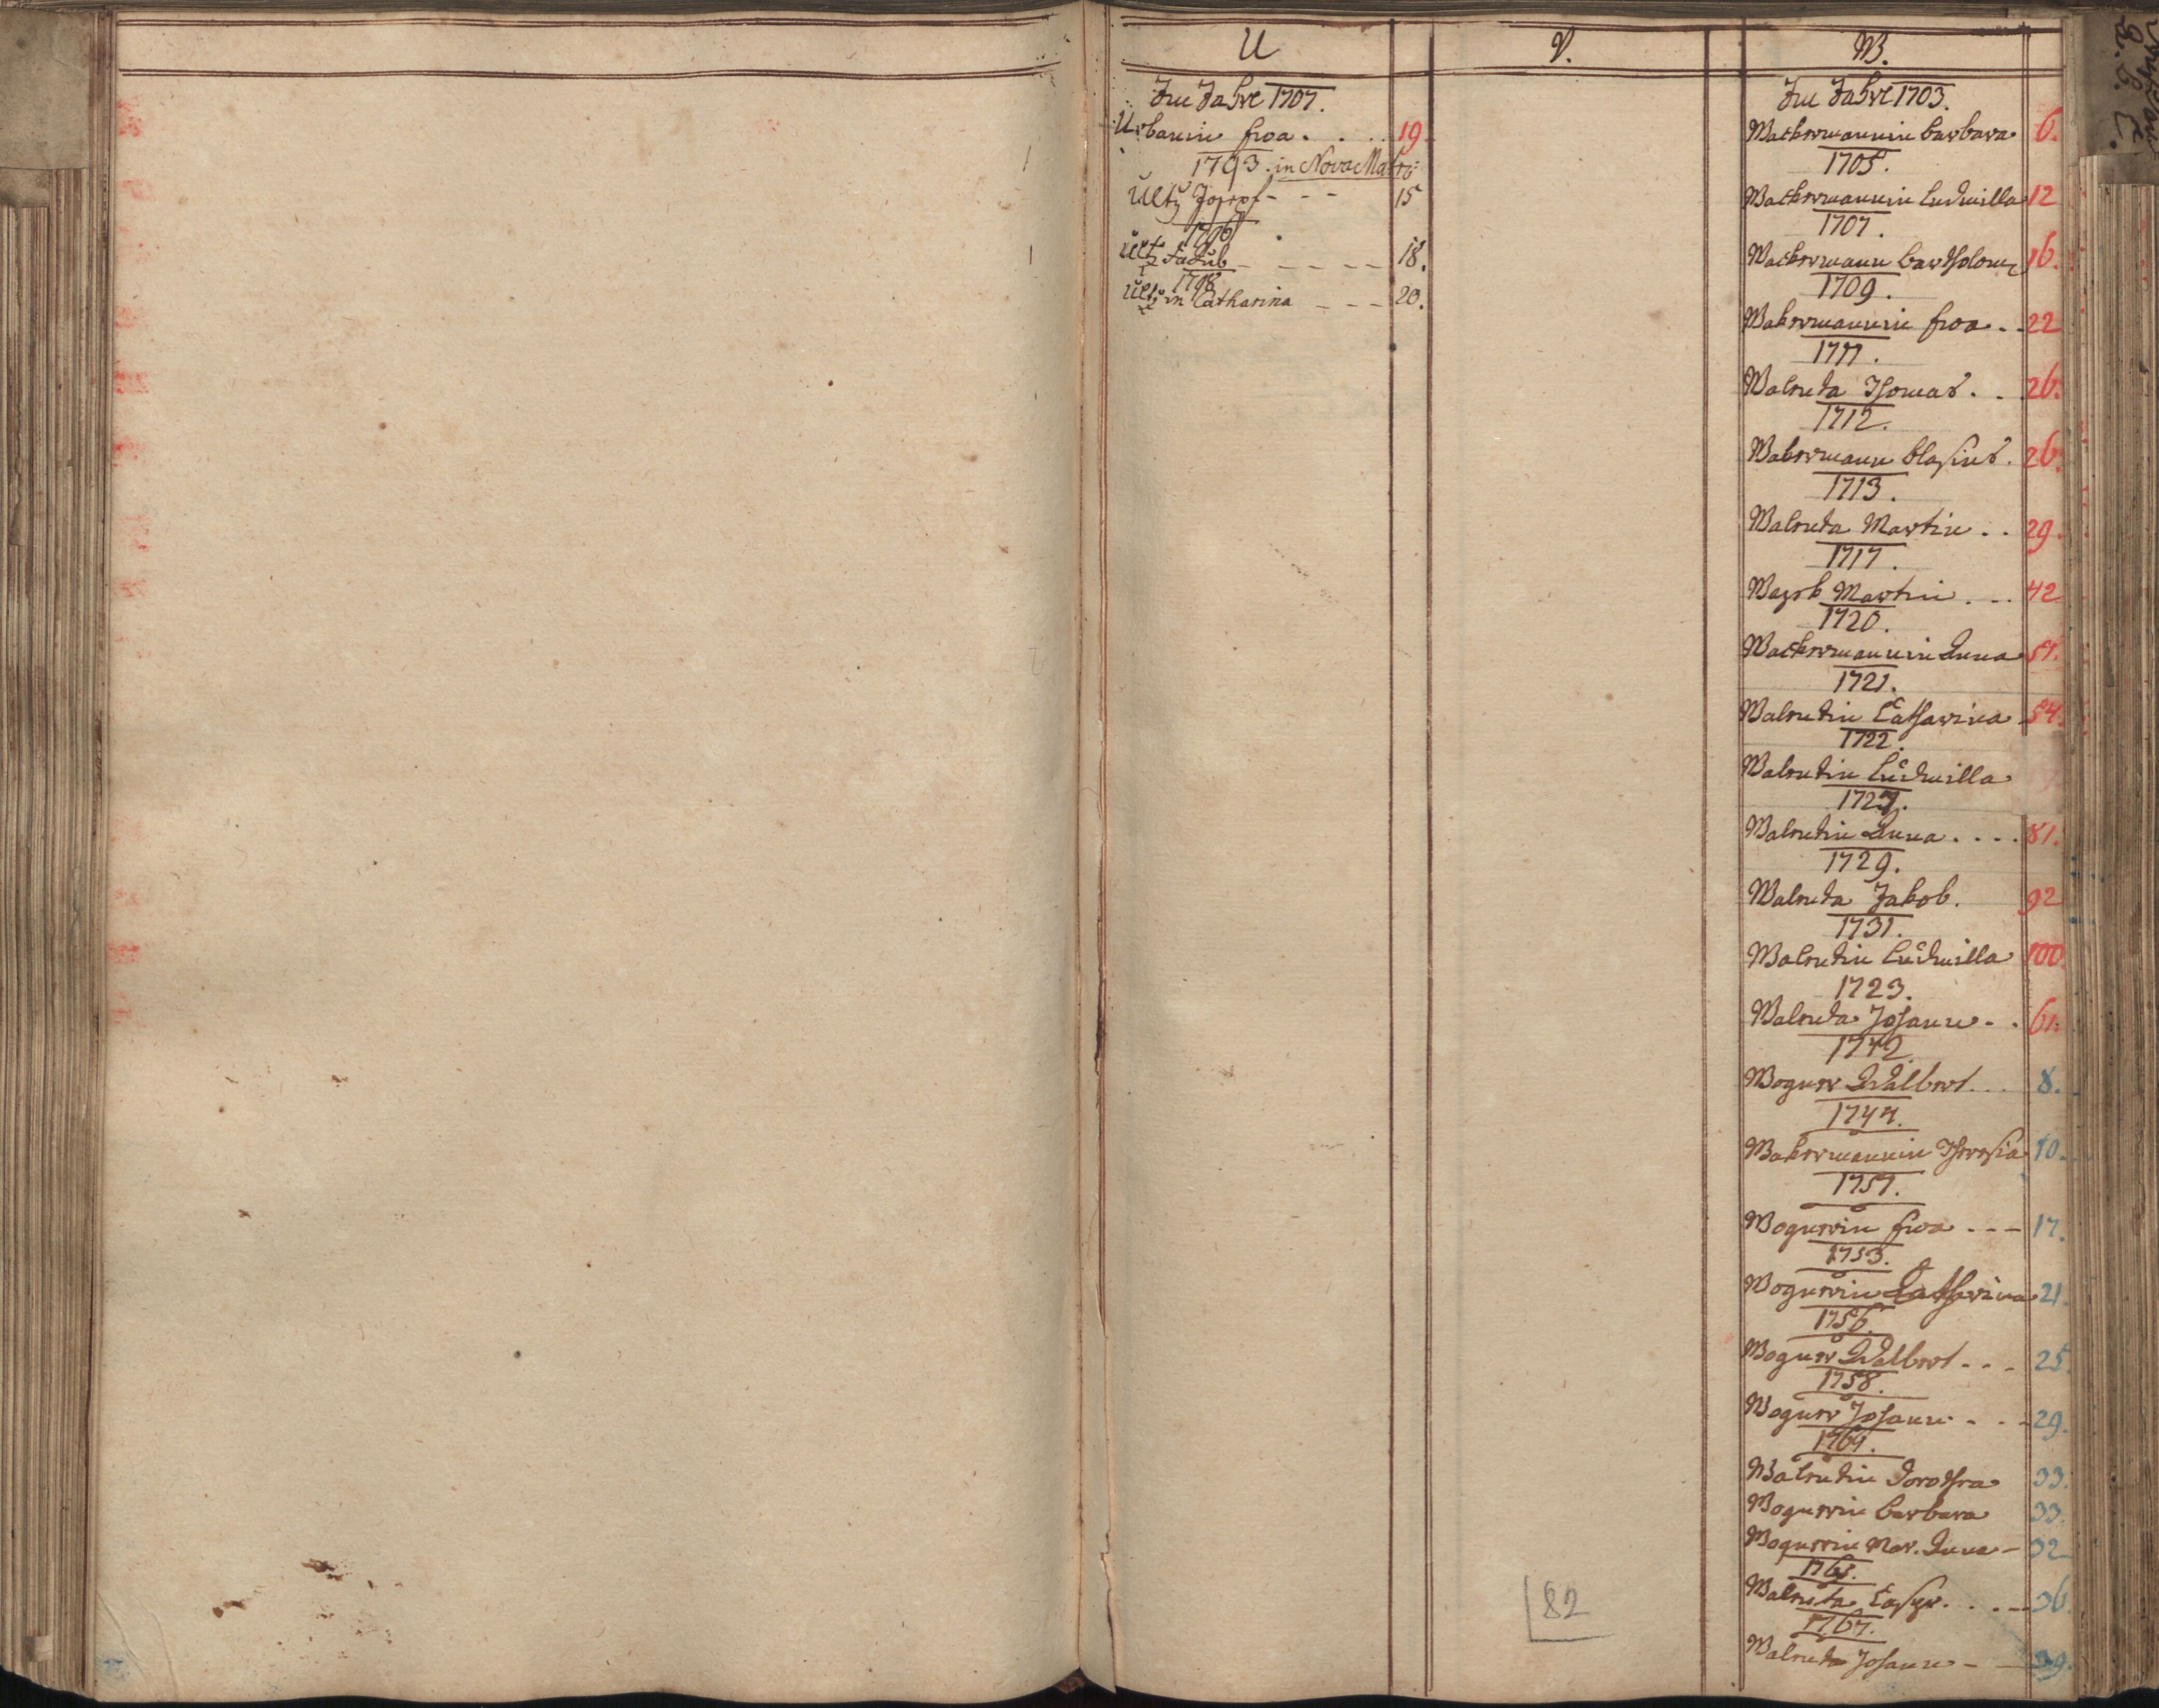 U
Im Jahre 1707.
Urbanin Eva . . . . 19.
1793. in Nova Matri:
Ultz Josepf - - - 15
1796
Ultz Jakub - - - - - 18.
1798
Ultzin Catharina - - - 20.
V.
W.
Im Jahre 1703.
Wackermannin Barbara 6.
1705.
Wackermannin Ludmilla 12
1707.
Wackermann Bartholom: 16.
1709.
Wakermannin Eva . . 22
1711.
Walenta Thomas . . . 26.
1712.
Wakermann Blasius . 26.
1713.
Walenta Martin . . 29.
1717.
Wazek Martin . . . 42
1720.
Wackermannin Anna 51.
1721.
Walentin Catharina 54.
1722.
Walentin Ludmilla
1727.
Walentin Anna . . . . 81.
1729.
Walenta Jakob. 92
1731.
Walentin Ludmilla 100.
1723.
Walenta Johann . . 61.
1742.
Wogner Adalbert . . . 8.
1744.
Wakermannin Theresia 10.
1751.
Wognerin Eva - - - 17.
1753.
Wognerin Catherina 21.
1756.
Wogner Adalbert - - - 25.
1758.
Wogner Johann - - - 29.
1764.
Walentin Dorothea 33.
Wognerin Barbara 33.
Wognerin Mar. Anna - 32
1765.
Walenta Casper . . . - 36.
1767.
Walenta Johann - - 39.
82